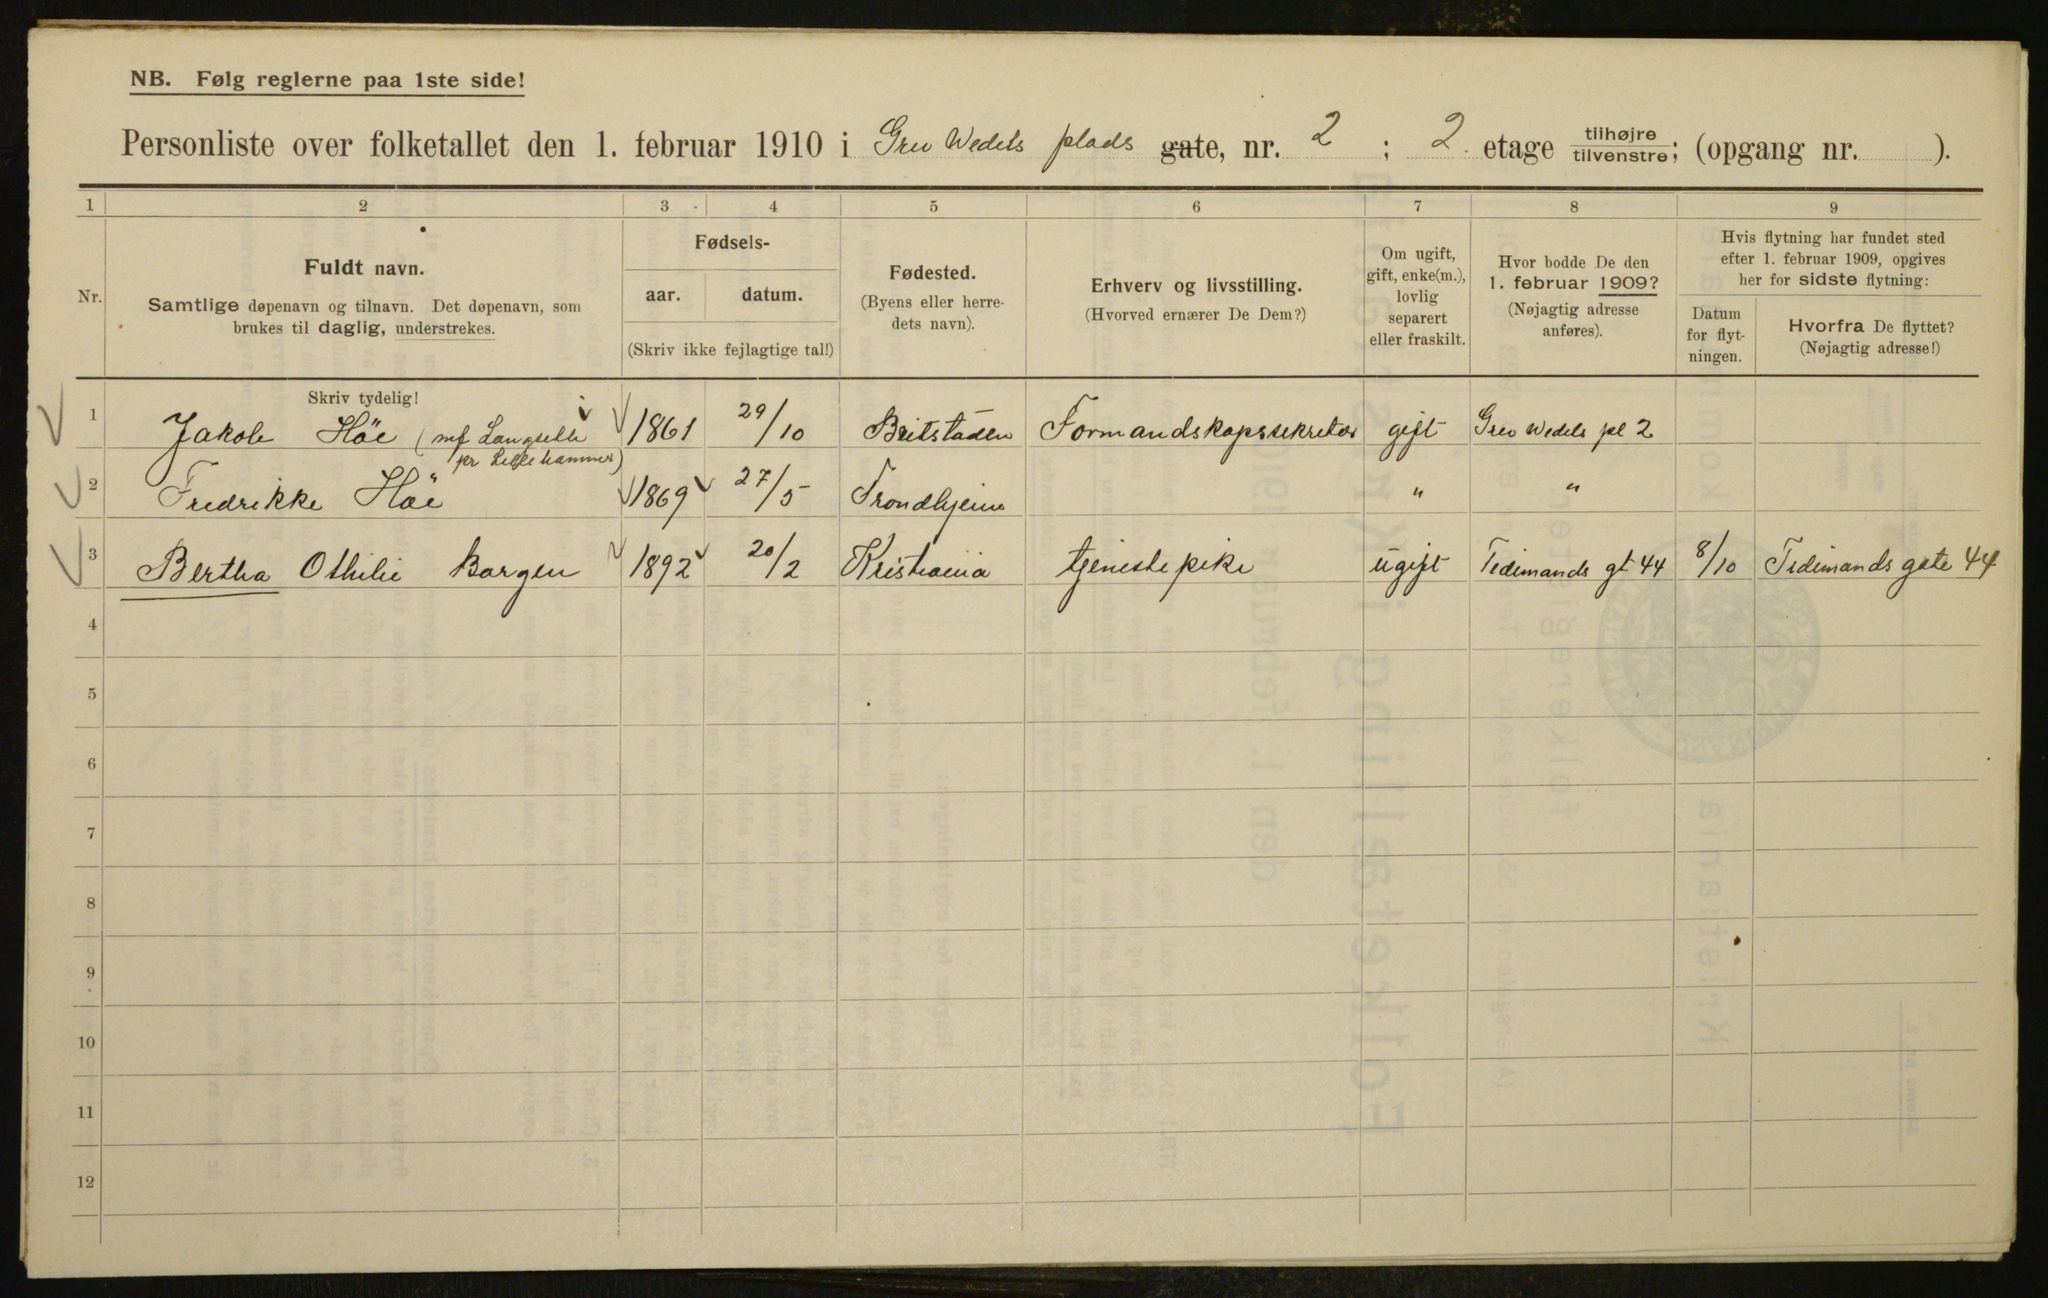 NB. Følg reglerne paa 1ste side!
Personliste over folketallet den 1. februar 1910 i Grev Wedels plads gate, nr. 2 ; 2. etage tilhøjre tilvenstre; (opgang nr. ).
1 2 3 4 5 6 7 8 9
Nr.
Fuldt navn.
Samtlige døpenavn og tilnavn. Det døpenavn, som
brukes til daglig, understrekes.
Fødsels-
aar. datum.
(Skriv ikke fejlagtige tal!)
Fødested.
(Byens eller herre-
dets navn).
Erhverv og livsstilling.
(Hvorved ernærer De Dem?)
Om ugift,
gift, enke(m.),
lovlig
separert
eller fraskilt.
Hvor bodde De den
1. februar 1909?
(Nøjagtig adresse
anføres).
Hvis flytning har fundet sted
efter 1. februar 1909, opgives
her for sidste flytning:
Datum
for flyt-
ningen.
Hvorfra De flyttet?
(Nøjagtig adresse!)
Skriv tydelig!
1 Jakob Höe (mf 1861 29/10 Beitstaden Formandskapssekretær gift Grev Wedels pl 2
pr Lillehammer)
2 Fredrikke Höe 1869 27/5 Trondhjem " "
3 Bertha Othilie Borgen 1892 20/2 Kristiania tjenestepike ugift Tidemands gt 44 8/10 Tidemands gate 44
4
5
6
7
8
9
10
11
12